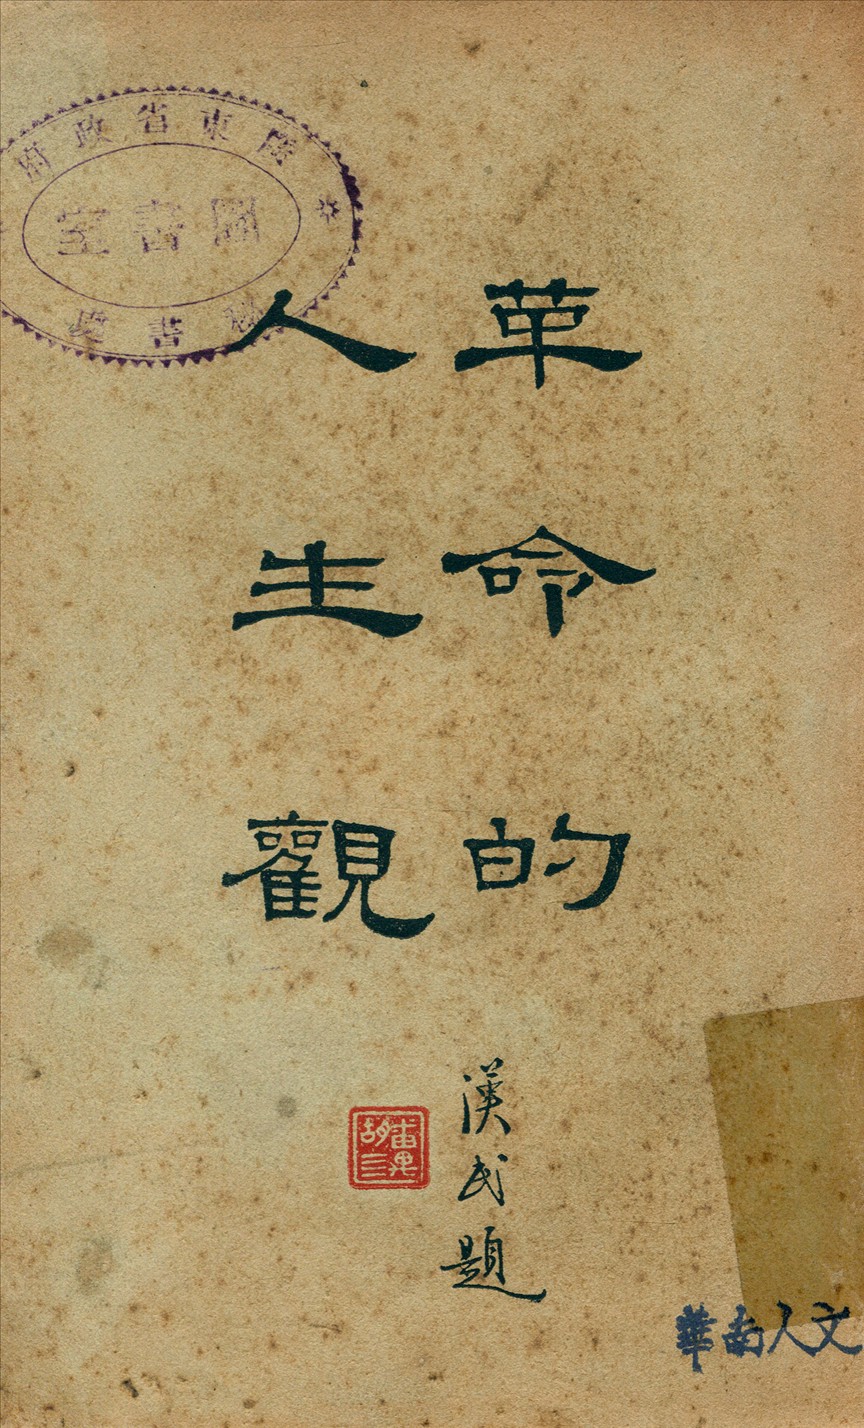 廣東省政府
圖書室
秘書處
革命的
人生觀
漢民題
華南人文